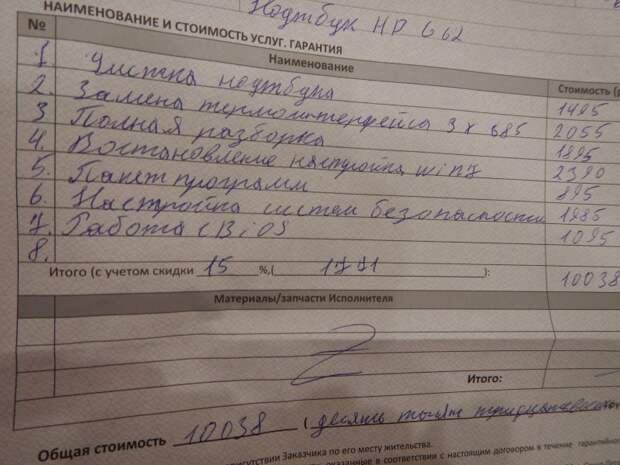 Ноутбук HP G62
НАИМЕНОВАНИЕ И СТОИМОСТЬ УСЛУГ. ГАРАНТИЯ
№ Наименование Стоимость (р
1. Чистка ноутбука 1495
2. Замена термоинтерфейса 3 x 685 2055
3 Полная разборка 1895
4. Востановление настройка win7 2390
5. Пакет программ 895
6. Настройка систем безопасности 1985
7. Работа с BiOS 1095
8.
Итого (с учетом скидки 15 %,( 1771 ): 10038
Материалы/запчасти Исполнителя
Итого:
Общая стоимость 10038 ( десять тысяч тридцать восемь
присутствии Заказчика по его месту жительства.
оказанные в соответствии с настоящим договором в течение гарантийного